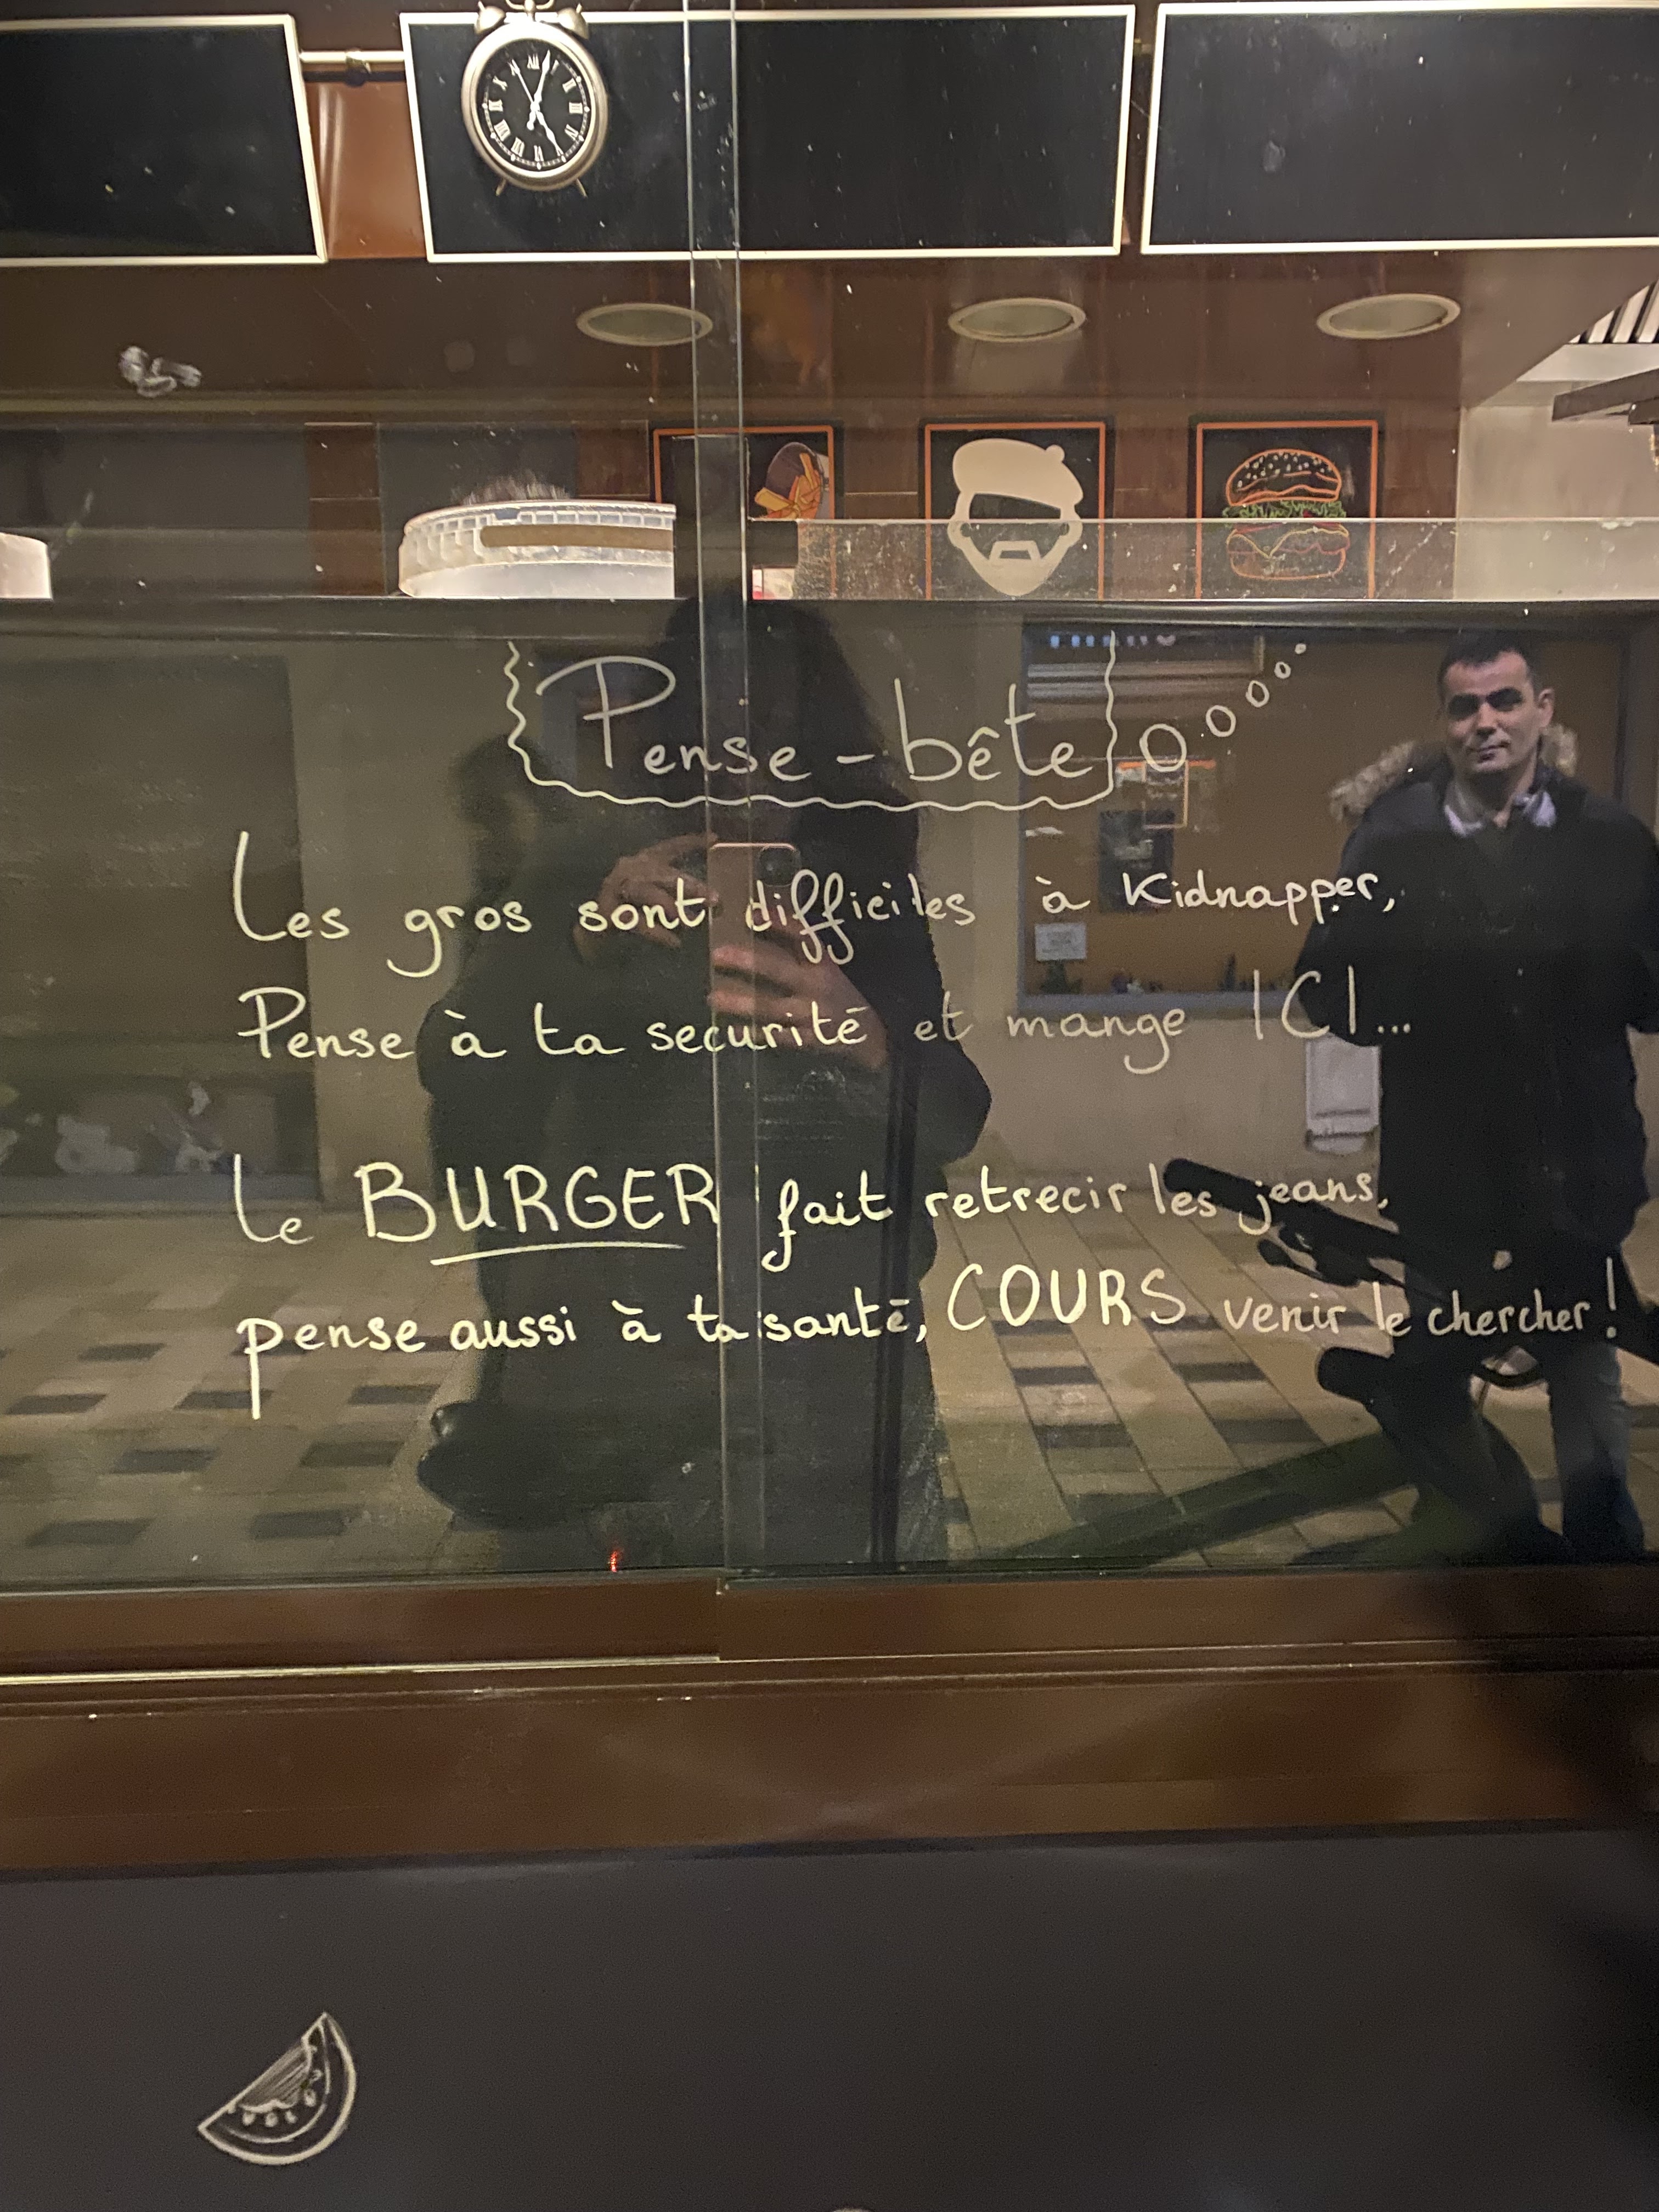 Pense-bête
Les gros sont difficiles à Kidnapper,
Pense à ta securité et mange ICI...
Le BURGER fait retrecir les jeans,
pense aussi à ta santé, COURS venir le chercher!